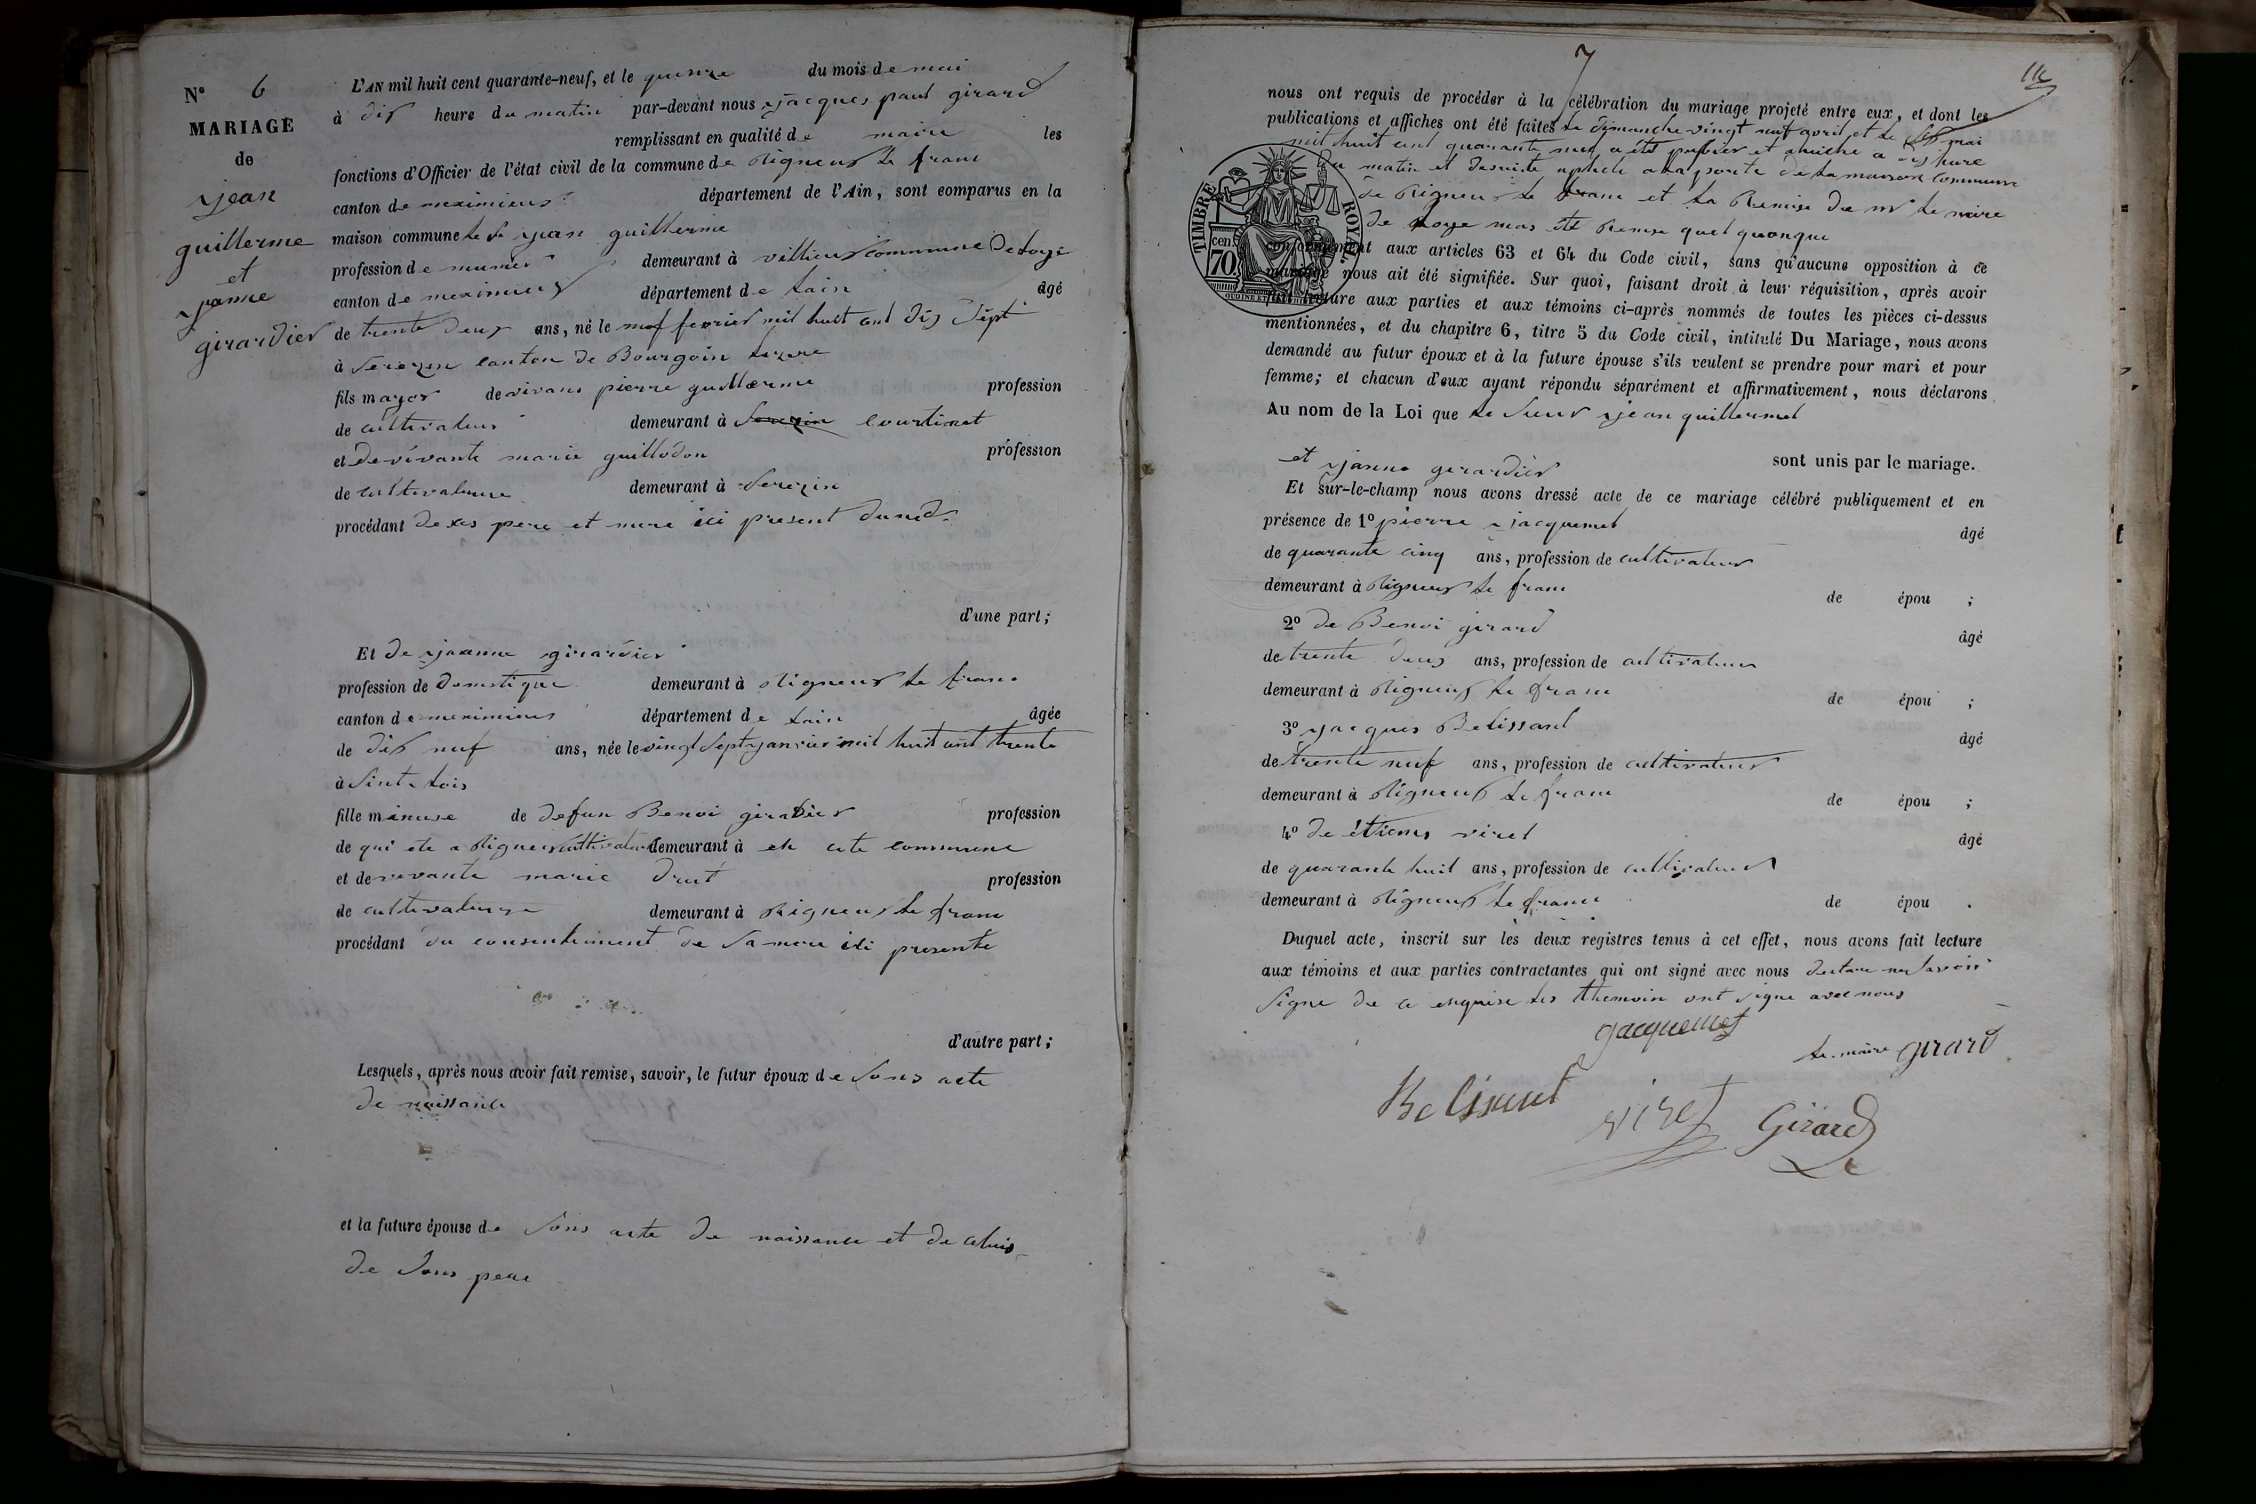 N° 6
MARIAGE
de
jean
guillerme
et
janne
girardier
L'AN mil huit cent quarante-neuf, et le quinze du mois de mai
à dix heure du matin par-devant nous jacques paul girard
remplissant en qualité de maire les
fonctions d'Officier de l'état civil de la commune de Rigneux le franc
canton de meximieux département de l'Ain, sont comparus en la
maison commune le Sr jean guillerme
profession de demeurant à villieux commune de Loye
canton de meximieux département de Lain âgé
de trente deux ans, né le neuf fevrier mil huit cent dix sept
à Serezin canton de Bourgoin Lizere
fils mayor de vivans pierre guillerme profession
de cultivateur demeurant à Serezin Courtinet
et de vivante marie guillodon profession
de cultivateure demeurant à Serezin
procédant de ses pere et mere ici present
d'une part;
Et de jeanne girardier
profession de domestique demeurant à Rigneux le franc
canton de meximieux département de Lain âgée
de dix neuf ans, née le vingt sept janvier mil huit cent trente
à Sint Lois
fille mineure de defun Benoi girardier profession
de qui ete a Rigneux cultivateur demeurant à en cete commune
et de vivante marie Druet profession
de cultivateuse demeurant à Rigneux le franc
procédant du consentement de Sa mere ici presente
d'autre part;
Lesquels, après nous avoir fait remise, savoir, le futur époux de Sons acte
de naissance
et la future épouse de Sons acte de naissance et de celuis
de Sons pere
7
nous ont requis de procéder à la célébration du mariage projeté entre eux, et dont les
publications et affiches ont été faites le dimanche vingt neuf avril et le six mai
mil huit cent quarante neuf a été publier et afiche a dix hure
du matin et desuite a la porte de la maison commune
de Rigneux le franc et la Remise de mr le maire
de Loye mas ete Remise quel quonque
conformément aux articles 63 et 64 du Code civil, sans qu'aucune opposition à ce
mariage nous ait été signifiée. Sur quoi, faisant droit à leur réquisition, après avoir
fait lecture aux parties et aux témoins ci-après nommés de toutes les pièces ci-dessus
mentionnées, et du chapitre 6, titre 5 du Code civil, intitulé Du Mariage, nous avons
demandé au futur époux et à la future épouse s'ils veulent se prendre pour mari et pour
femme; et chacun d'eux ayant répondu séparément et affirmativement, nous déclarons
Au nom de la Loi que le Sieur jean guillermet
et janne girardier sont unis par le mariage.
Et sur-le-champ nous avons dressé acte de ce mariage célébré publiquement et en
présence de 1° pierre jacquemet âgé
de quarante cinq ans, profession de cultivateur
demeurant à Rigneux le franc de épou ;
2° de Benoi girard âgé
de trente deux ans, profession de cultivateur
demeurant à Rigneux le franc de épou ;
3° jacques Belissant âgé
de trente neuf ans, profession de cultivateur
demeurant à Rigneux le franc de épou ;
4° de étiens viret âgé
de quarante huit ans, profession de cultivateur
demeurant à Rigneux le franc de épou .
Duquel acte, inscrit sur les deux registres tenus à cet effet, nous avons fait lecture
aux témoins et aux parties contractantes qui ont signé avec nous declare ne savoir
Signe de ce enquise les themoin ont signe avec nous
jacquemet
le maire girard
Belissent viret Girard
TIMBRE ROYAL
70 cen